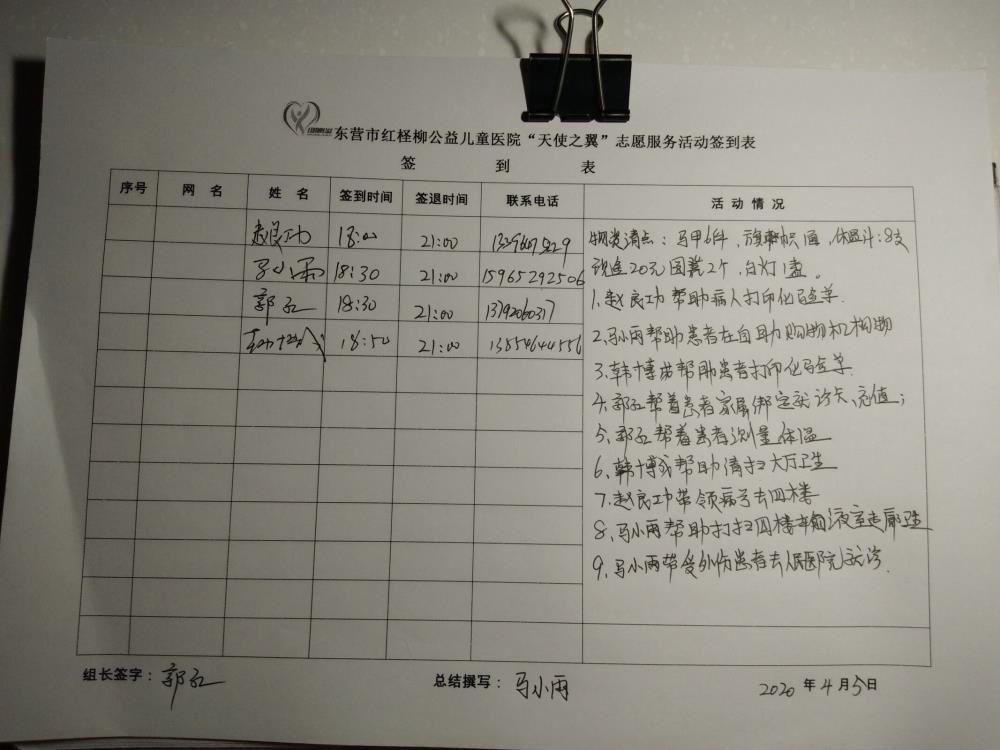 东营市红柽柳公益儿童医院“天使之翼”志愿服务活动签到表
签 到 表
序号 网 名 姓 名 签到时间 签退时间 联系电话 活 动 情 况
赵良功 18:00 21:00
马小雨 18:30 21:00 15965292506
郭红 18:30 21:00 13792060317
18:50 21:00 13854644556
物资清点：马甲6件，旗帜1面，体温计：8支
现金20元 白灯1盏。
1、赵良功帮助病人打印化验单.
2、马小雨帮助患者在自助购物机构物
3、韩博 帮助患者打印化验单.
4、郭红帮着患者家属绑定就诊卡、充值；
5、郭红帮着患者测量体温
6、韩博 帮助清扫大厅卫生
7、赵良功带领病号去四楼
8、马小雨帮助打扫四楼 输液室走廊卫生
9、马小雨带受外伤患者去人民医院就诊.
组长签字：郭红 总结撰写：马小雨 2020 年 4 月 5 日